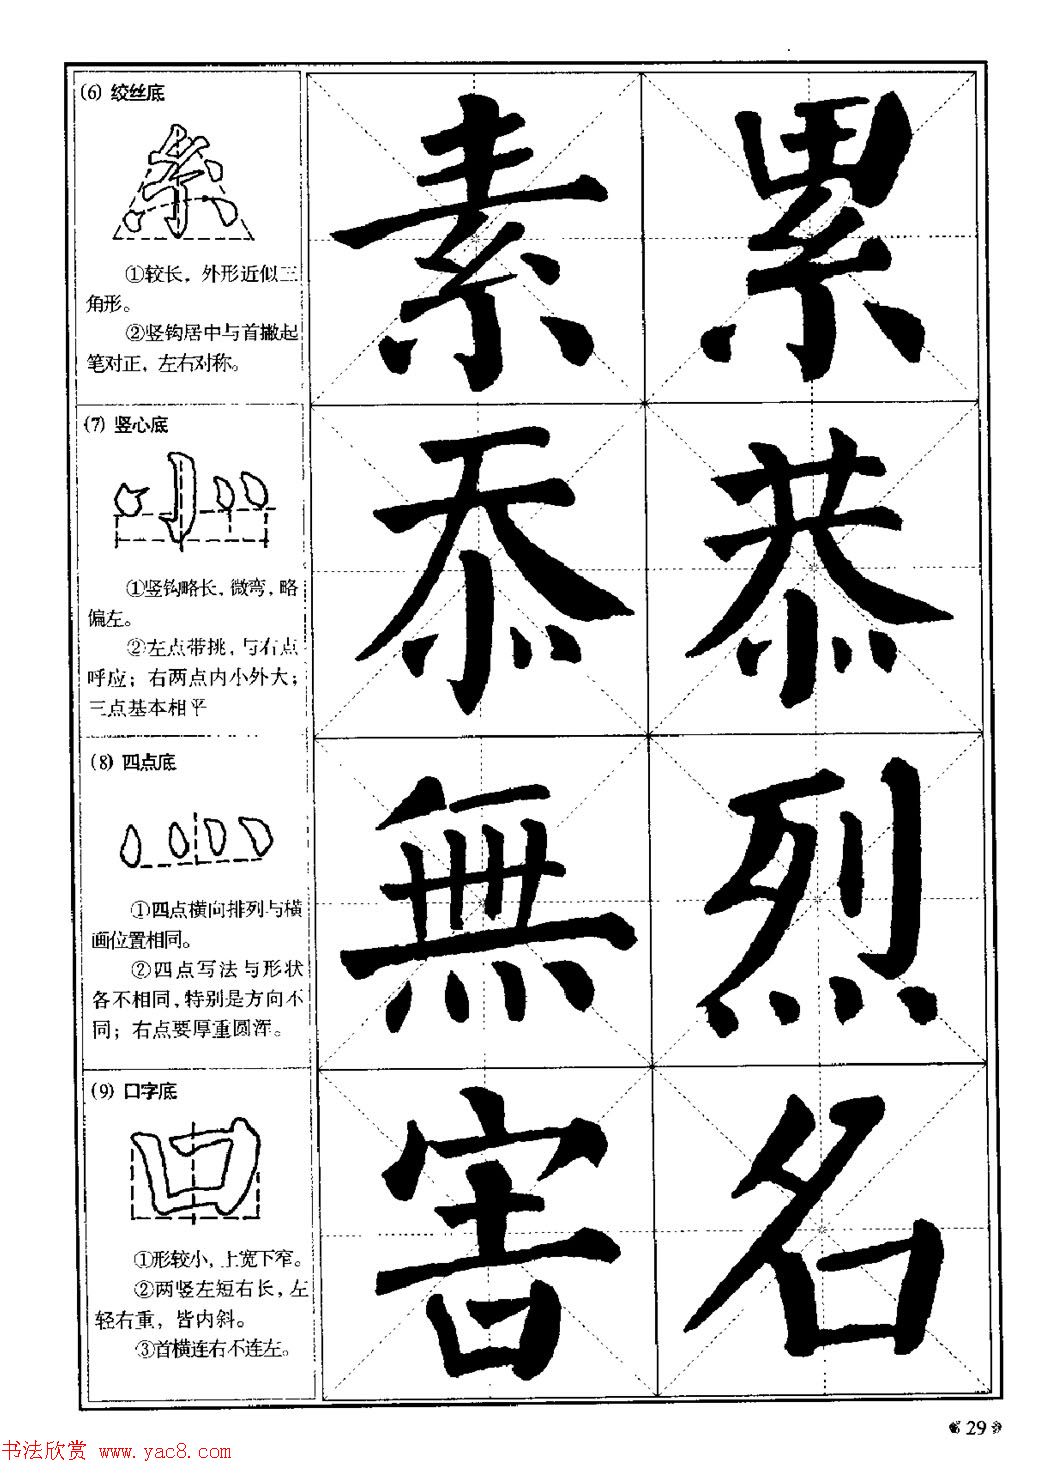 (6) 绞丝底
①较长，外形近似三
角形。
②竖钩居中与首撇起
笔对正，左右对称。
素 累
(7) 竖心底
①竖钩略长，微弯，略
偏左。
②左点带挑，与右点
呼应；右两点内小外大；
三点基本相平
忝 恭
(8) 四点底
①四点横向排列与横
画位置相同。
②四点写法与形状
各不相同，特别是方向不
同；右点要厚重圆浑。
無 烈
(9) 口字底
①形较小，上宽下窄。
②两竖左短右长，左
轻右重，皆内斜。
③首横连右不连左。
害 名
29
书法欣赏 www.yac8.com